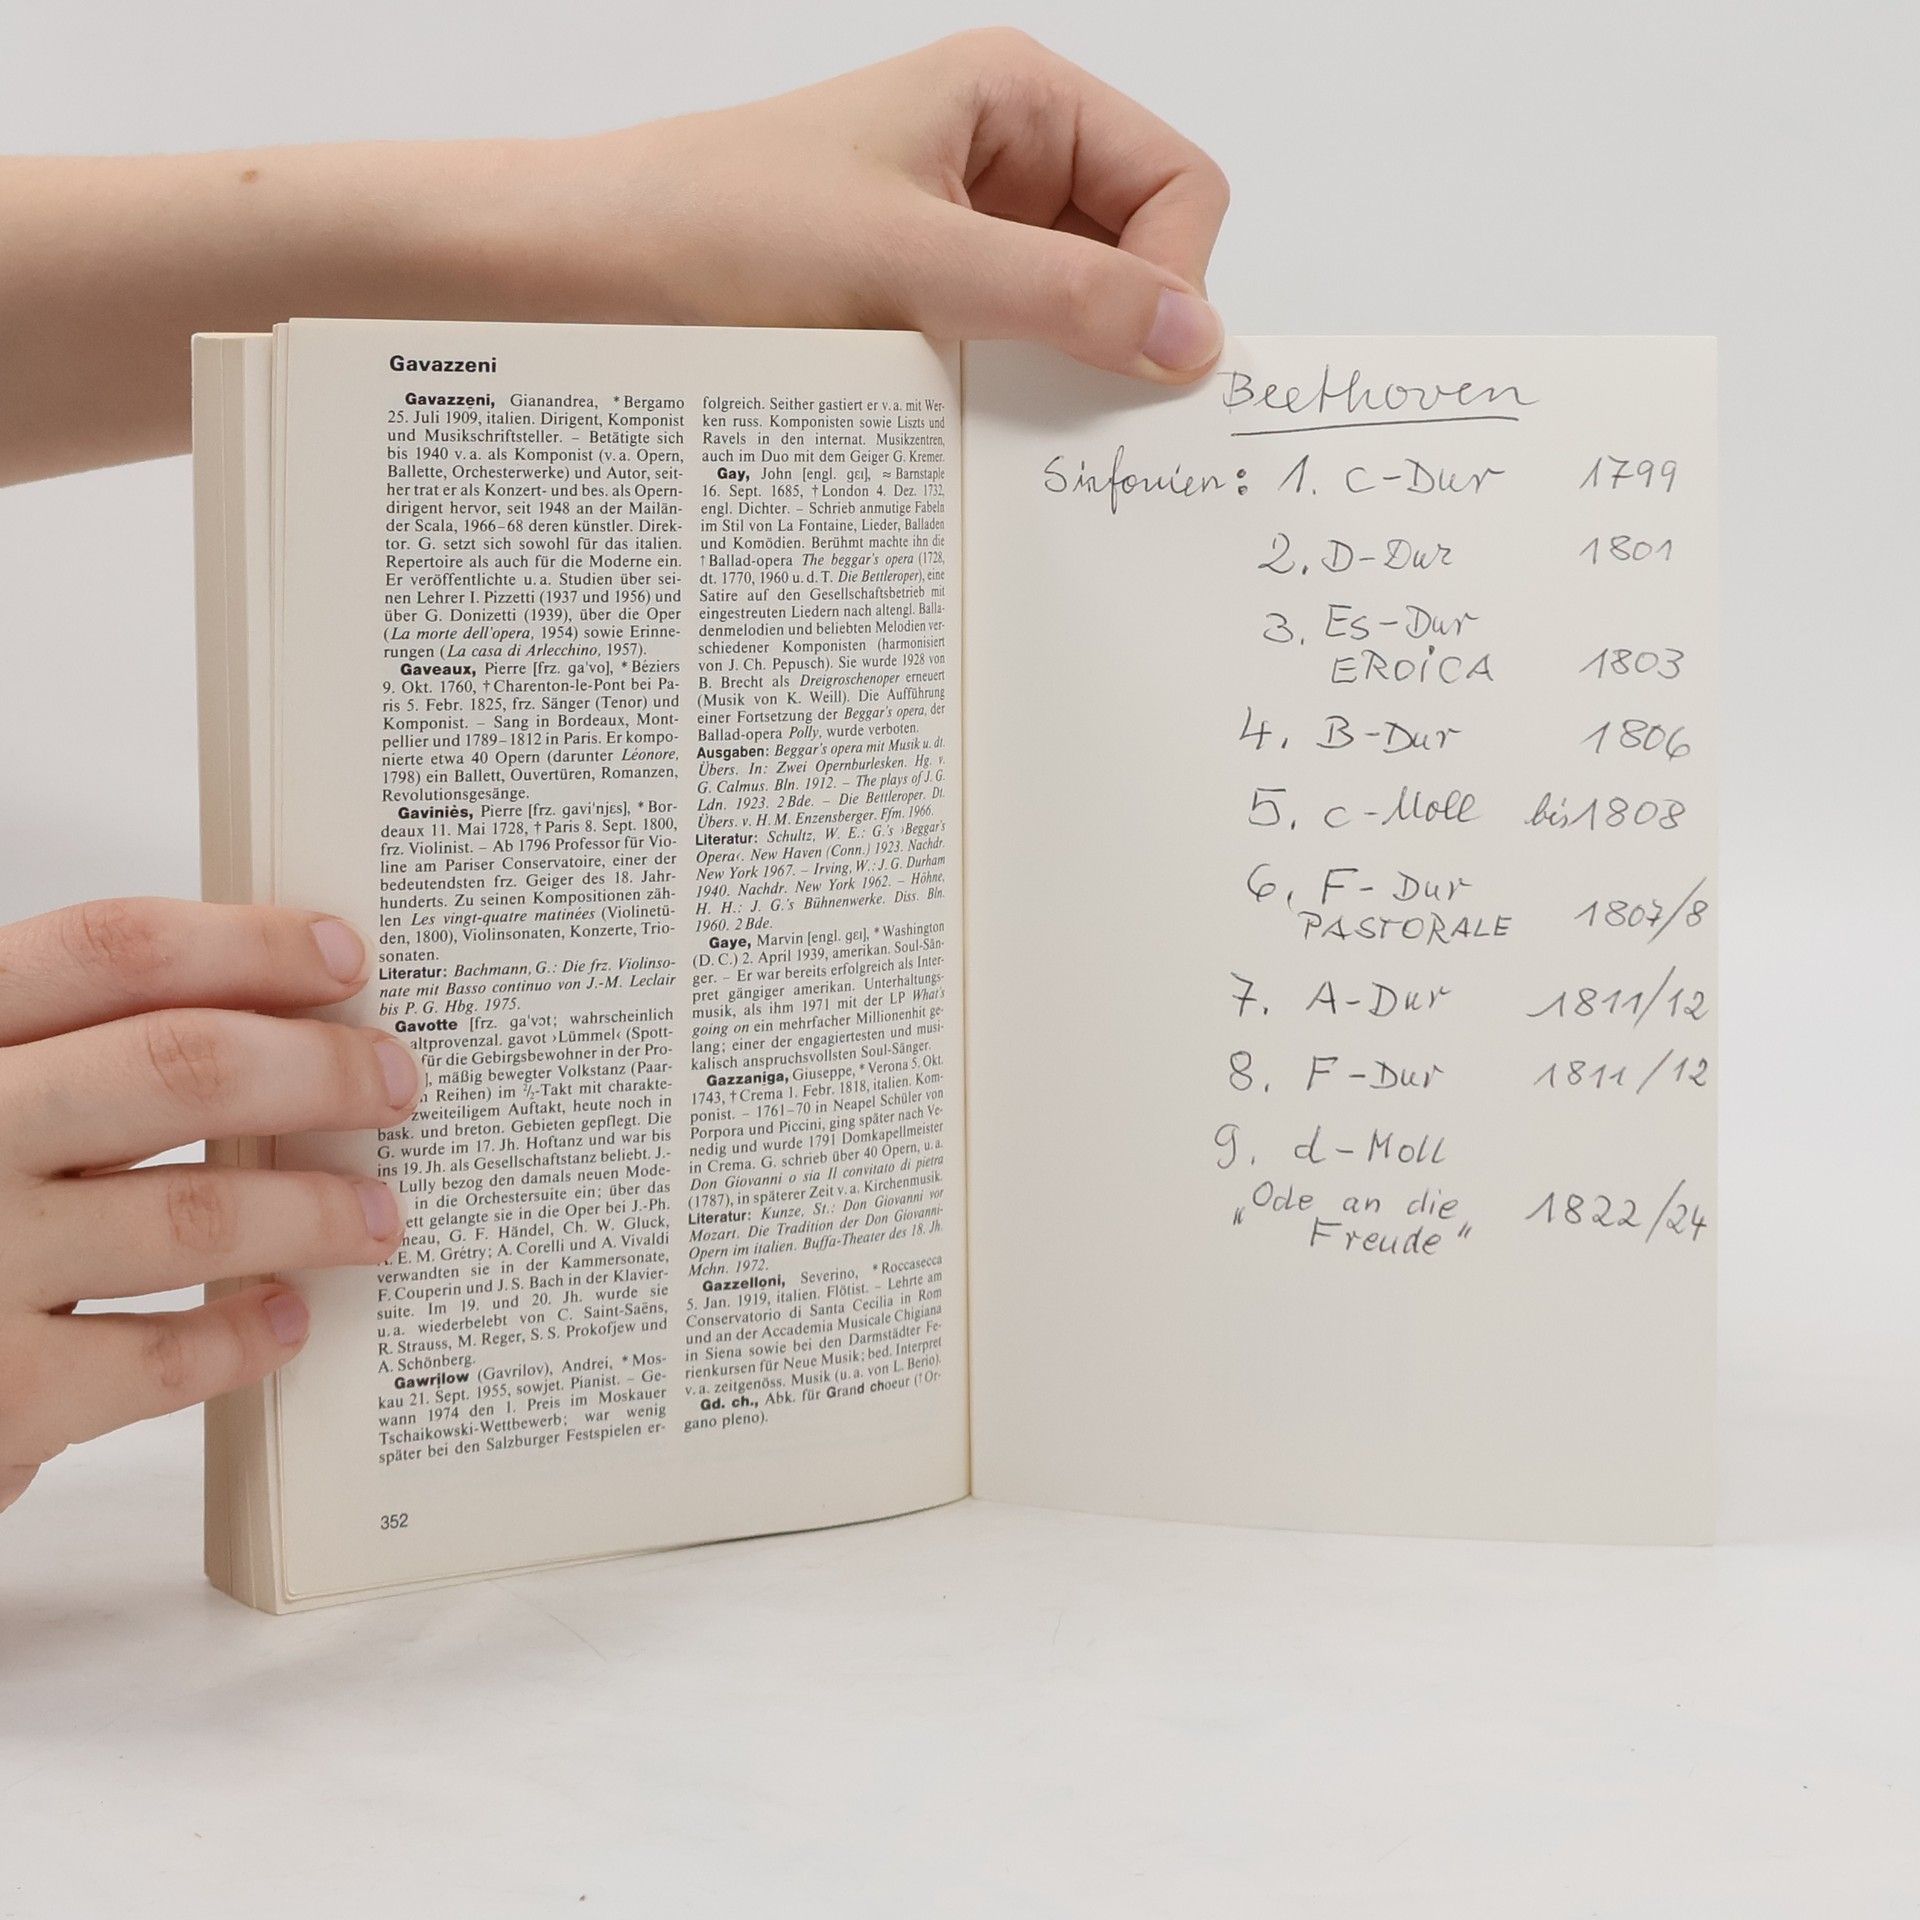 Gavazzeni
Gavazzeni, Gianandrea, *Bergamo
25. Juli 1909, italien. Dirigent, Komponist
und Musikschriftsteller. – Betätigte sich
bis 1940 v. a. als Komponist (v. a. Opern,
Ballette, Orchesterwerke) und Autor, seit-
her trat er als Konzert- und bes. als Opern-
dirigent hervor, seit 1948 an der Mailän-
der Scala, 1966–68 deren künstler. Direk-
tor. G. setzt sich sowohl für das italien.
Repertoire als auch für die Moderne ein.
Er veröffentlichte u. a. Studien über sei-
nen Lehrer I. Pizzetti (1937 und 1956) und
über G. Donizetti (1939), über die Oper
(La morte dell'opera, 1954) sowie Erinne-
rungen (La casa di Arlecchino, 1957).
Gaveaux, Pierre [frz. ga'vo], *Béziers
9. Okt. 1760, †Charenton-le-Pont bei Pa-
ris 5. Febr. 1825, frz. Sänger (Tenor) und
Komponist. – Sang in Bordeaux, Mont-
pellier und 1789–1812 in Paris. Er kompo-
nierte etwa 40 Opern (darunter Léonore,
1798) ein Ballett, Ouvertüren, Romanzen,
Revolutionsgesänge.
Gaviniès, Pierre [frz. gavi'njɛs], *Bor-
deaux 11. Mai 1728, †Paris 8. Sept. 1800,
frz. Violinist. – Ab 1796 Professor für Vio-
line am Pariser Conservatoire, einer der
bedeutendsten frz. Geiger des 18. Jahr-
hunderts. Zu seinen Kompositionen zäh-
len Les vingt-quatre matinées (Violinetü-
den, 1800), Violinsonaten, Konzerte, Trio-
sonaten.
Literatur: Bachmann, G.: Die frz. Violinso-
nate mit Basso continuo von J.-M. Leclair
bis P. G. Hbg. 1975.
Gavotte [frz. ga'vɔt; wahrscheinlich
altprovenzal. gavot ›Lümmel‹ (Spott-
für die Gebirgsbewohner in der Pro-
], mäßig bewegter Volkstanz (Paar-
Reihen) im 2/2-Takt mit charakte-
zweiteiligem Auftakt, heute noch in
bask. und breton. Gebieten gepflegt. Die
G. wurde im 17. Jh. Hoftanz und war bis
ins 19. Jh. als Gesellschaftstanz beliebt. J.-
Lully bezog den damals neuen Mode-
in die Orchestersuite ein; über das
ett gelangte sie in die Oper bei J.-Ph.
neau, G. F. Händel, Ch. W. Gluck,
A. E. M. Grétry; A. Corelli und A. Vivaldi
verwandten sie in der Kammersonate,
F. Couperin und J. S. Bach in der Klavier-
suite. Im 19. und 20. Jh. wurde sie
u. a. wiederbelebt von C. Saint-Saëns,
R. Strauss, M. Reger, S. S. Prokofjew und
A. Schönberg.
Gawrilow (Gavrilov), Andrei, *Mos-
kau 21. Sept. 1955, sowjet. Pianist. – Ge-
wann 1974 den 1. Preis im Moskauer
Tschaikowski-Wettbewerb; war wenig
später bei den Salzburger Festspielen er-
352
folgreich. Seither gastiert er v. a. mit Wer-
ken russ. Komponisten sowie Liszts und
Ravels in den internat. Musikzentren,
auch im Duo mit dem Geiger G. Kremer.
Gay, John [engl. gɛɪ], ≈ Barnstaple
16. Sept. 1685, †London 4. Dez. 1732,
engl. Dichter. – Schrieb anmutige Fabeln
im Stil von La Fontaine, Lieder, Balladen
und Komödien. Berühmt machte ihn die
↑Ballad-opera The beggar's opera (1728,
dt. 1770, 1960 u. d. T. Die Bettleroper), eine
Satire auf den Gesellschaftsbetrieb mit
eingestreuten Liedern nach altengl. Balla-
denmelodien und beliebten Melodien ver-
schiedener Komponisten (harmonisiert
von J. Ch. Pepusch). Sie wurde 1928 von
B. Brecht als Dreigroschenoper erneuert
(Musik von K. Weill). Die Aufführung
einer Fortsetzung der Beggar's opera, der
Ballad-opera Polly, wurde verboten.
Ausgaben: Beggar's opera mit Musik u. dt.
Übers. In: Zwei Opernburlesken. Hg. v.
G. Calmus. Bln. 1912. – The plays of J. G.
Ldn. 1923. 2 Bde. – Die Bettleroper. Dt.
Übers. v. H. M. Enzensberger. Ffm. 1966.
Literatur: Schultz, W. E.: G.'s ›Beggar's
Opera‹. New Haven (Conn.) 1923. Nachdr.
New York 1967. – Irving, W.: J. G. Durham
1940. Nachdr. New York 1962. – Höhne,
H. H.: J. G.'s Bühnenwerke. Diss. Bln.
1960. 2 Bde.
Gaye, Marvin [engl. gɛɪ], *Washington
(D. C.) 2. April 1939, amerikan. Soul-Sän-
ger. – Er war bereits erfolgreich als Inter-
pret gängiger amerikan. Unterhaltungs-
musik, als ihm 1971 mit der LP What's
going on ein mehrfacher Millionenhit ge-
lang; einer der engagiertesten und musi-
kalisch anspruchsvollsten Soul-Sänger.
Gazzaniga, Giuseppe, *Verona 5. Okt.
1743, †Crema 1. Febr. 1818, italien. Kom-
ponist. – 1761–70 in Neapel Schüler von
Porpora und Piccini, ging später nach Ve-
nedig und wurde 1791 Domkapellmeister
in Crema. G. schrieb über 40 Opern, u. a.
Don Giovanni o sia Il convitato di pietra
(1787), in späterer Zeit v. a. Kirchenmusik.
Literatur: Kunze, St.: Don Giovanni vor
Mozart. Die Tradition der Don Giovanni-
Opern im italien. Buffa-Theater des 18. Jh.
Mchn. 1972.
Gazzelloni, Severino, *Roccasecca
5. Jan. 1919, italien. Flötist. – Lehrte am
Conservatorio di Santa Cecilia in Rom
und an der Accademia Musicale Chigiana
in Siena sowie bei den Darmstädter Fe-
rienkursen für Neue Musik; bed. Interpret
v. a. zeitgenöss. Musik (u. a. von L. Berio).
Gd. ch., Abk. für Grand choeur (↑Or-
gano pleno).
Beethoven
Sinfonien: 1. C-Dur 1799
2. D-Dur 1801
3. Es-Dur
EROiCA 1803
4. B-Dur 1806
5. c-Moll bis 1808
6. F-Dur
PASTORALE 1807/8
7. A-Dur 1811/12
8. F-Dur 1811/12
9. d-Moll
„Ode an die 1822/24
Freude"